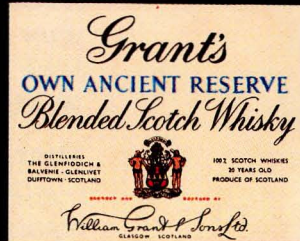 Grant's
OWN ANCIENT RESERVE
Blended Scotch Whisky
DISTILLERIES
THE GLENFIDDICH &
BALVENIE - GLENLIVET
DUFFTOWN · SCOTLAND
100% SCOTCH WHISKIES
20 YEARS OLD
PRODUCE OF SCOTLAND
William Grant & Sons Ltd.
GLASGOW SCOTLAND